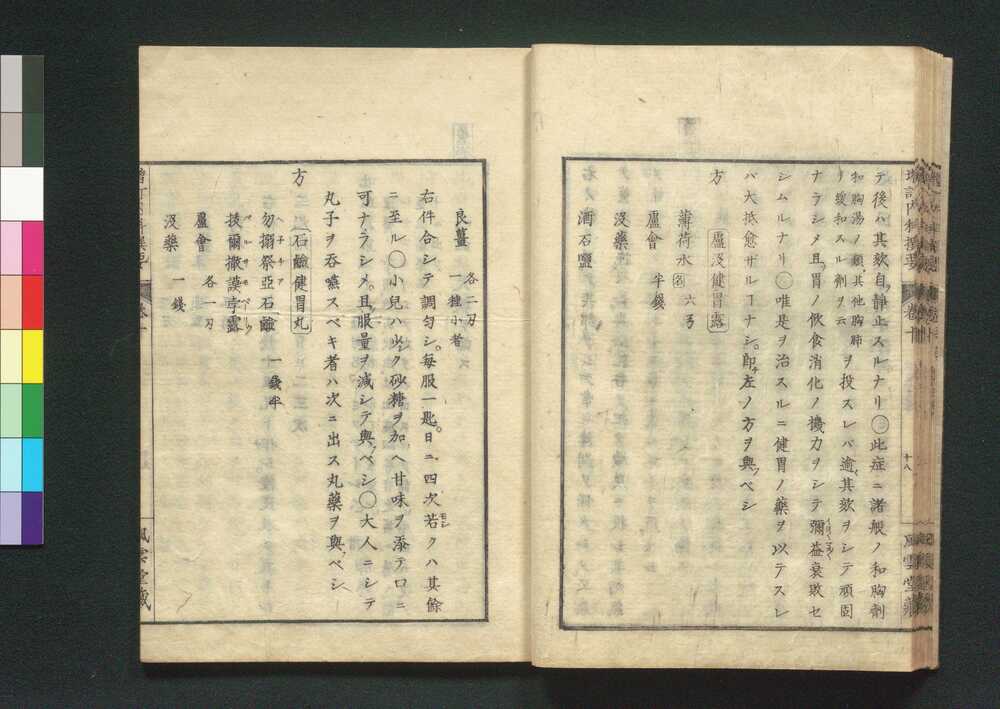 増訂内科撰要 卷十 十八 風雲堂藏
テ後ハ其欬自ラ靜止スルナリ〇此症ニ諸般ノ和胸劑
和胸湯ノ類其他胸肺
ヲ緩和スル劑ヲ云
ヲ投スレバ逾其欬ヲシテ頑固
ナラシメ且胃ノ飲食消化ノ機力ヲシテ彌益衰敗セ
シムルナリ〇唯是ヲ治スルニ健胃ノ藥ヲ以テスレ
バ大抵愈ザルヿナシ。即チ左ノ方ヲ與フベシ
方 蘆没健胃露
薄荷水 名 六
蘆會 半錢
没藥
酒石鹽
良薑
各二刃
一捶小者
右件合シテ調勻シ。毎服一匙。日ニ四次若クハ其餘
ニ至ル〇小兒ハ少ク砂糖ヲ加ヘ甘味ヲ添テ口ニ
可ナラシメ。且服量ヲ減シテ與フベシ〇大人ニシテ
丸子ヲ吞嚥スベキ者ハ次ニ出ス丸藥ヲ與フベシ
方 石鹼健胃丸
勿搦祭亞石鹼 一錢半
拔爾撒謨孛露
蘆會 各一刃
没藥 一錢
増訂内科撰要 卷十 風雲堂藏